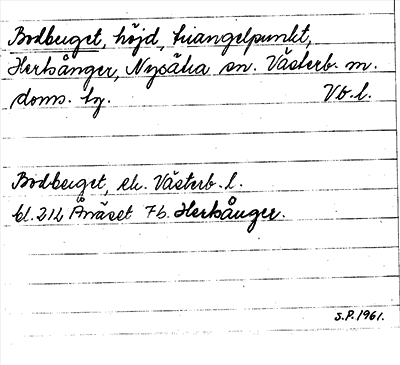 Bodberget, höjd, triangelpunkt,
Hertsånger, Nysätra sn. Västerb. m.
doms. tg. Vb. l.
Bodberget, ek. Västerb. l.
bl. 212 Ånäset 7b. Hertsånger.
S.P. 1961.